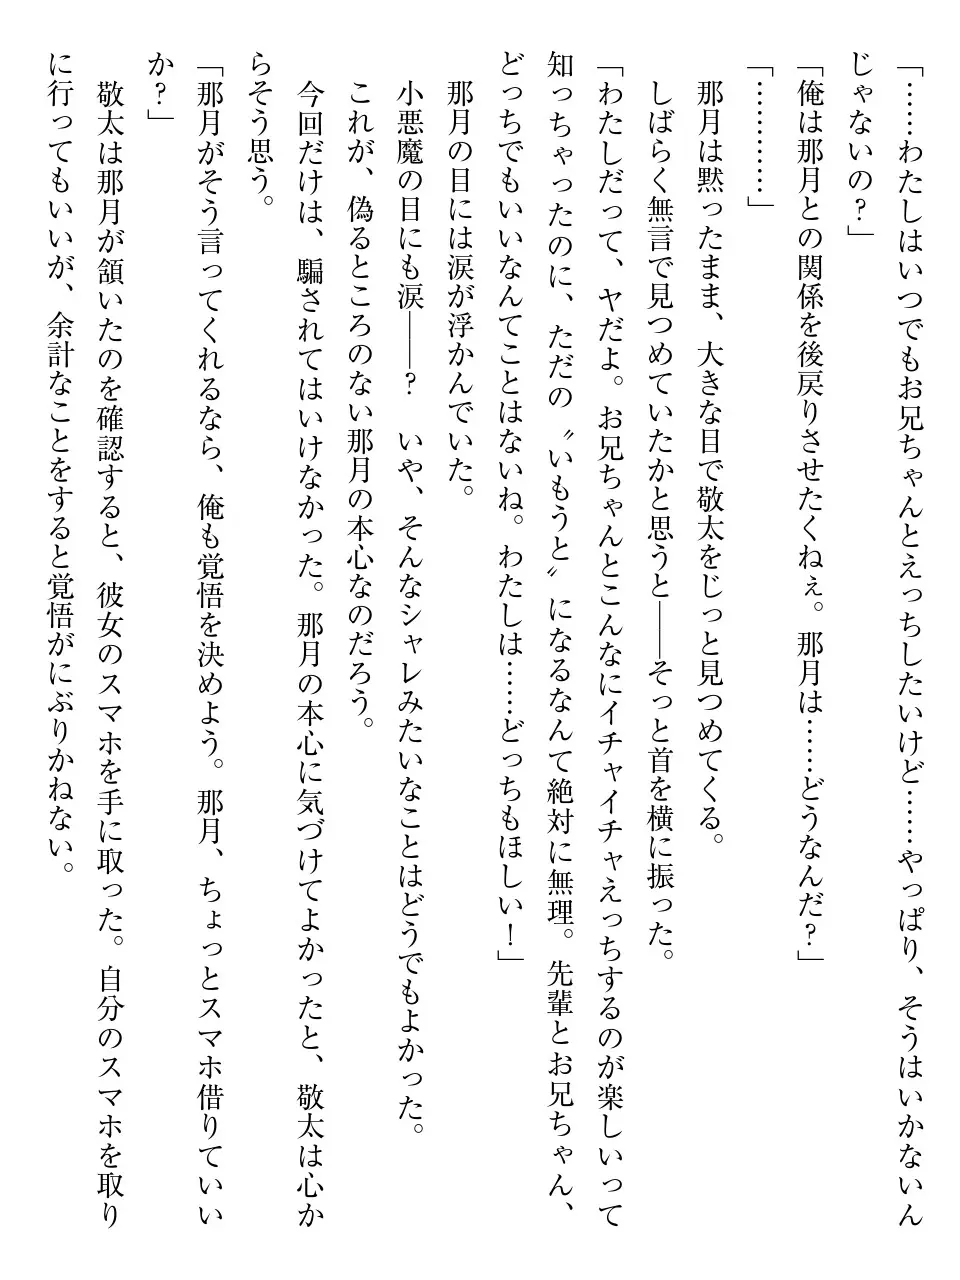 「……わたしはいつでもお兄ちゃんとえっちしたいけど……やっぱり、そうはいかないん
じゃないの？」
「俺は那月との関係を後戻りさせたくねぇ。那月は……どうなんだ？」
「…………」
　那月は黙ったまま、大きな目で敬太をじっと見つめてくる。
　しばらく無言で見つめていたかと思うと――そっと首を横に振った。
「わたしだって、ヤだよ。お兄ちゃんとこんなにイチャイチャえっちするのが楽しいって
知っちゃったのに、ただの〝いもうと〟になるなんて絶対に無理。先輩とお兄ちゃん、
どっちでもいいなんてことはないね。わたしは……どっちもほしい！」
　那月の目には涙が浮かんでいた。
　小悪魔の目にも涙――？　いや、そんなシャレみたいなことはどうでもよかった。
　これが、偽るところのない那月の本心なのだろう。
　今回だけは、騙されてはいけなかった。那月の本心に気づけてよかったと、敬太は心か
らそう思う。
「那月がそう言ってくれるなら、俺も覚悟を決めよう。那月、ちょっとスマホ借りていい
か？」
　敬太は那月が頷いたのを確認すると、彼女のスマホを手に取った。自分のスマホを取り
に行ってもいいが、余計なことをすると覚悟がにぶりかねない。